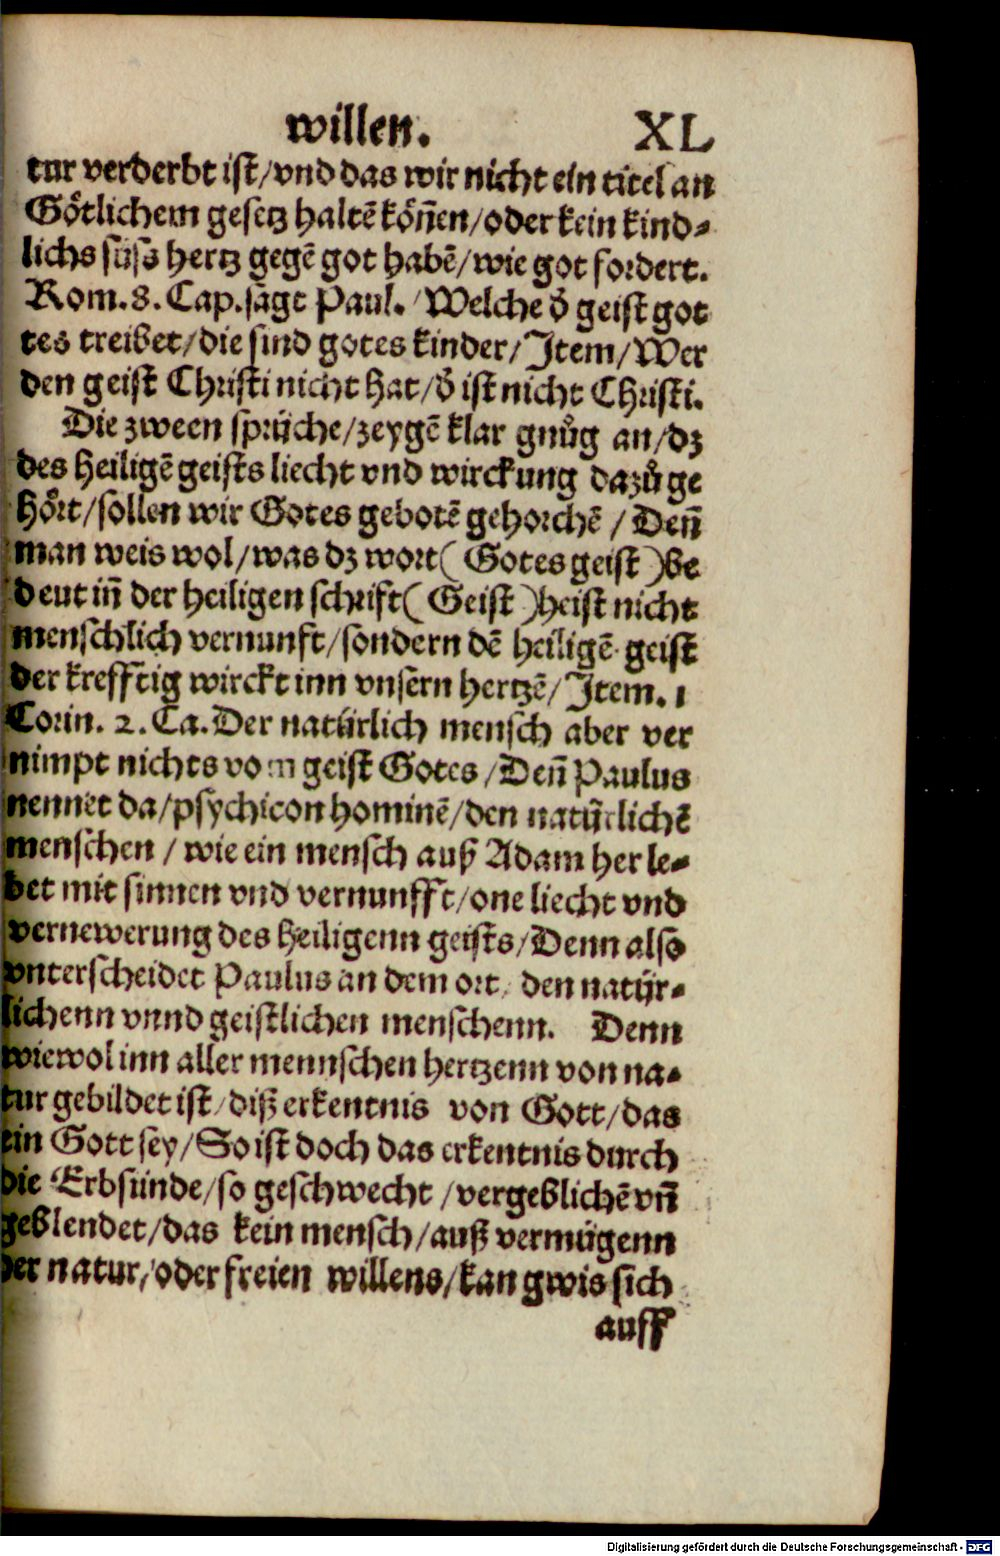 willen. XL
tur verderbt ist/vnd das wir nicht ein titel an
Goͤtlichem gesetz haltē koͤn̄en/oder kein kind-
lichs süss hertz gegē got habē/wie got fordert.
Rom.8.Cap.sagt Paul./Welche d̄ geist got
tes treibet/die sind gotes kinder/Item/Wer
den geist Christi nicht hat/d̄ ist nicht Christi.
Die zween sprüche/zeygē klar gnůg an/dz
des heiligē geists liecht vnd wirckung dazů ge
hoͤrt/sollen wir Gotes gebotē gehorchē/Den̄
man weis wol/was dz wort(Gotes geist)be
deut in̄ der heiligen schrift(Geist)heist nicht
menschlich vernunft/sondern dē heiligē geist
der krefftig wirckt inn vnsern hertzē/Item.1
Corin.2.Ca.Der natürlich mensch aber ver
nimpt nichts vom geist Gotes/Den̄ Paulus
nennet da/psychicon hominē/den natürlichē
menschen/wie ein mensch auß Adam her le-
bet mit sinnen vnd vernunfft/one liecht vnd
vernewerung des heiligenn geists/Denn also
vnterscheidet Paulus an dem ort/den natür-
lichenn vnnd geistlichen menschenn. Denn
wiewol inn aller mennschen hertzenn von na-
tur gebildet ist/diß erkentnis von Gott/das
ein Gott sey/So ist doch das erkentnis durch
die Erbsünde/so geschwecht/vergeblichē vn̄
geblendet/das kein mensch/auß vermügenn
der natur/oder freien willens/kan gwis sich
auff
Digitalisierung gefördert durch die Deutsche Forschungsgemeinschaft - DFG